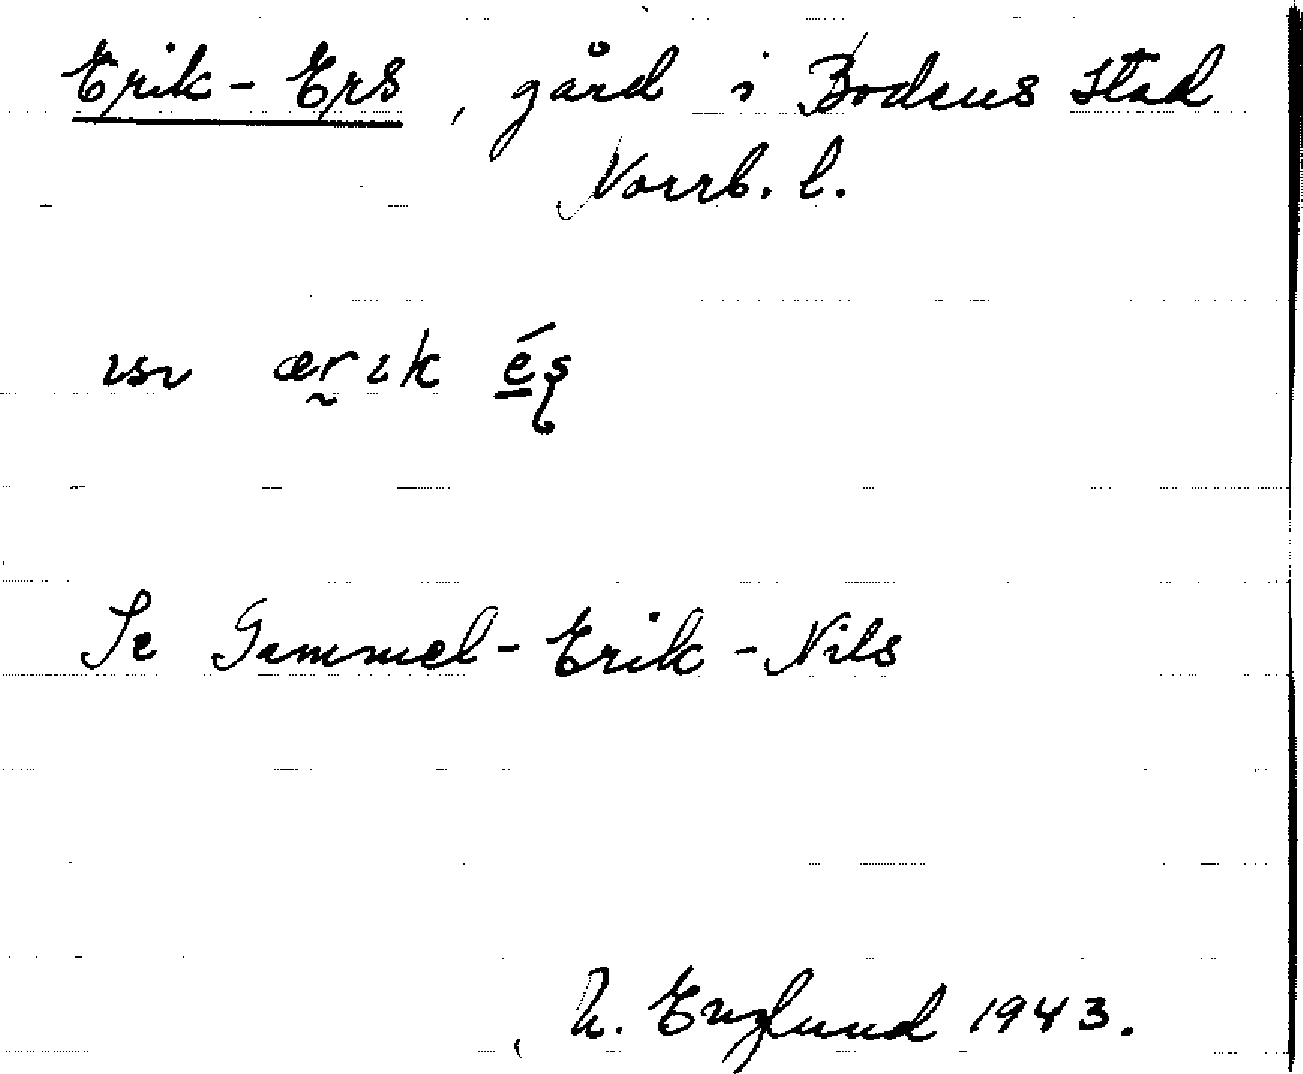 Erik-Ers, gård i Bodens stad
Norrb. l.
ærik és
Se Gammel-Erik-Nils
Englund 1943.